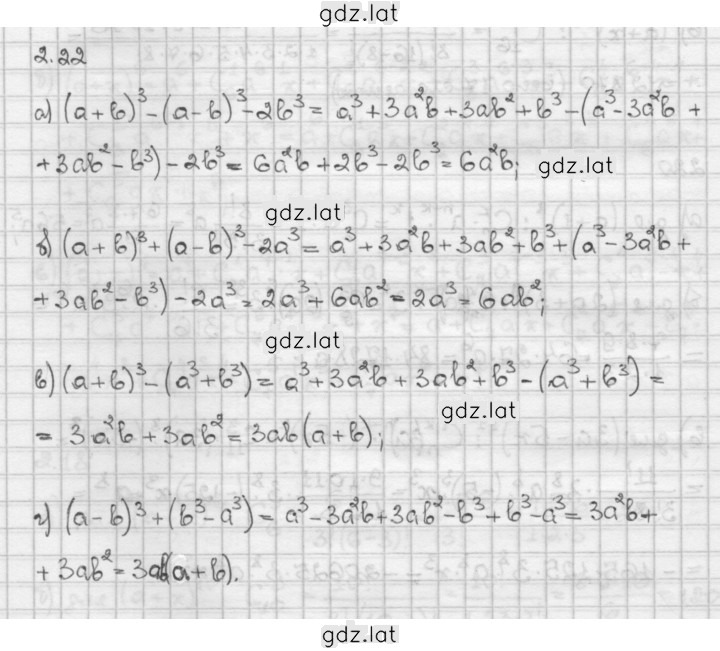 gdz.lat
2.22
а) (a+b)³-(a-b)³-2b³= a³+3a²b+3ab²+b³-(a³-3a²b +
+3ab²-b³)-2b³=6a²b+2b³-2b³=6a²b; gdz.lat
gdz.lat
б) (a+b)³+(a-b)³-2a³=a³+3a²b+3ab²+b³+(a³-3a²b+
+3ab²-b³)-2a³=2a³+6ab²-2a³=6ab²;
gdz.lat
в) (a+b)³-(a³+b³)=a³+3a²b+3ab²+b³-(a³+b³)=
gdz.lat
= 3a²b+3ab²=3ab(a+b);
г) (a-b)³+(b³-a³)=a³-3a²b+3ab²-b³+b³-a³=3a²b+
+3ab²=3ab(a+b).
gdz.lat